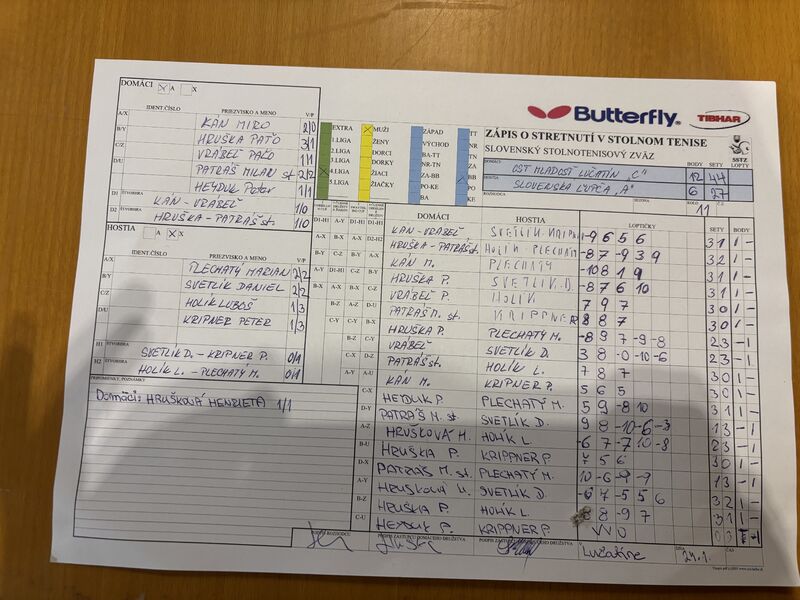 DOMÁCI A X
IDENT.ČÍSLO PRIEZVISKO A MENO V/P
A/X KÁN MIRO 2/0
B/Y HRUŠKA PAŤO 3/1
C/Z VRÁBEĽ PAĽO 1/1
D/U PATRÁŠ MILAN st. 2/2
HEYDUK Peter 1/1
D1 ŠTVORHRA KÁN - VRÁBEĽ 1/0
D2 HRUŠKA - PATRÁŠ st. 1/0
HOSTIA A X
IDENT.ČÍSLO PRIEZVISKO A MENO V/P
A/X PLECHATÝ MARIAN 2/2
B/Y SVETLÍK DANIEL 2/2
C/Z HOLÍK ĽUBOŠ 1/3
D/U KRIPNER PETER 1/3
H1 ŠTVORHRA SVETLÍK D. - KRIPNER P. 0/1
H2 ŠTVORHRA HOLÍK L. - PLECHATÝ M. 0/1
PRIPOMIENKY, POZNÁMKY
Domáci: HRUŠKOVÁ HENRIETA 1/1
EXTRA
1.LIGA
2.LIGA
3.LIGA
4.LIGA
5.LIGA
MUŽI
ŽENY
DORCI
DORKY
ŽIACI
ŽIAČKY
ZÁPAD
VÝCHOD
BA-TT
NR-TN
ZA-BB
PO-KE
BA
TT
NR
TN
ZA
BB
PO
KE
Butterfly
TIBHAR
ZÁPIS O STRETNUTÍ V STOLNOM TENISE
SLOVENSKÝ STOLNOTENISOVÝ ZVÄZ
SSTZ
BODY SETY LOPTY
DOMÁCI OST MLADOSŤ LUČATÍN "C" 12 44
HOSTIA SLOVENSKÁ ĽUPČA "A" 6 27
ROZHODCA SEZÓNA KOLO 11
DOMÁCI HOSTIA LOPTIČKY SETY BODY
KÁN - VRÁBEĽ -9 6 5 6 3 1 1 -
HRUŠKA - PATRÁŠ st. HOLÍK - PLECHATÝ -8 7 -9 3 9 3 2 1 -
KÁN M. PLECHATÝ -10 8 1 9 3 1 1 -
HRUŠKA P. SVETLÍK D. -8 7 6 10 3 1 1 -
VRÁBEĽ P. HOLÍK 7 9 7 3 0 1 -
PATRÁŠ M. st. KRIPPNER 8 8 7 3 0 1 -
HRUŠKA P. PLECHATÝ M. -8 9 7 -9 -8 2 3 - 1
VRÁBEĽ SVETLÍK D. 3 8 -0 -10 -6 2 3 - 1
PATRÁŠ st. HOLÍK L. 7 8 7 3 0 1 -
KÁN M. KRIPNER P. 5 6 5 3 0 1 -
HEYDUK P. PLECHATÝ M. 5 9 -8 10 3 1 1 -
PATRÁŠ M. st. SVETLÍK D. 9 8 -10 -6 -3
HRUŠKOVÁ H. HOLÍK L. -6 7 -7 10 -8
HRUŠKA P. KRIPPNER P. 7 5 6 3 0 1 -
PATRÁŠ M. st. PLECHATÝ M. 10 -6 -9 -9 1 3 - 1
HRUŠKOVÁ H. SVETLÍK D. -6 7 -5 5 6 3 2 1 -
HRUŠKA P. HOLÍK L. 8 -9 7 3 1 1 -
HEYDUK P. KRIPPNER P. WO
PODPIS ROZHODCU
PODPIS ZÁSTUPCU DOMÁCEHO DRUŽSTVA
PODPIS ZÁSTUPCU HOSTÍ DRUŽSTVA
Lučatíne DŇA 24.1. ČAS